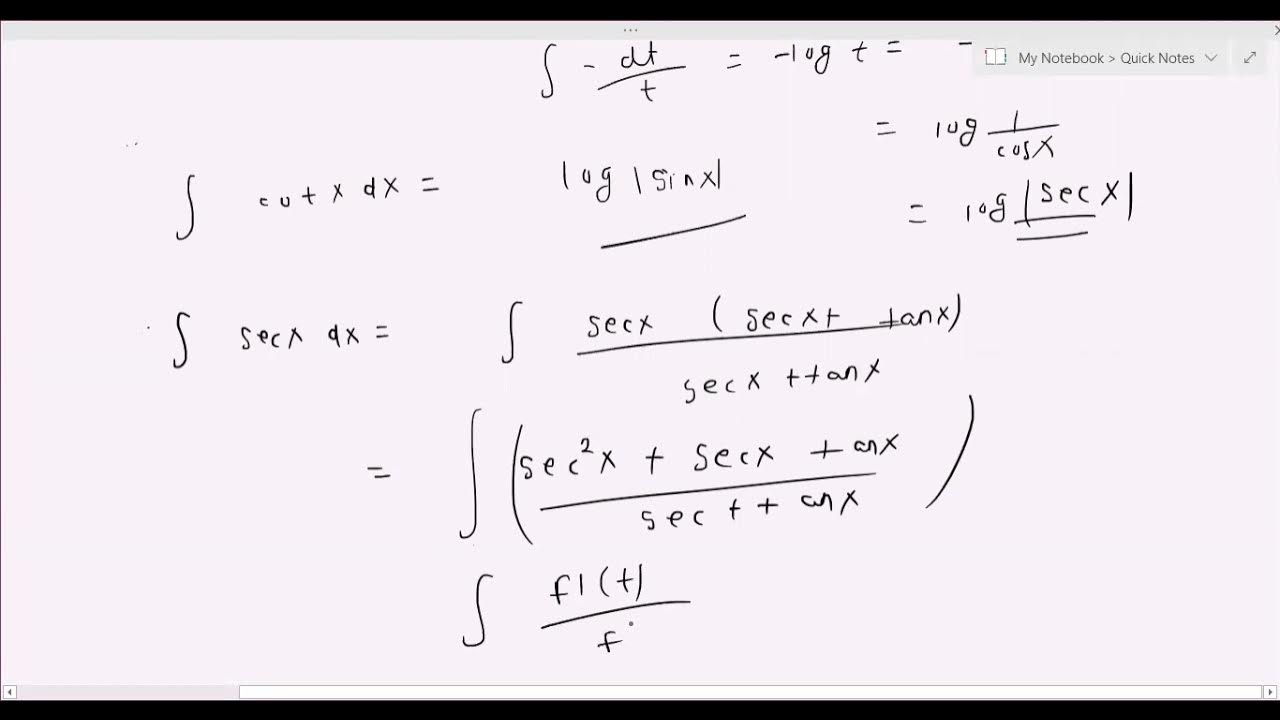 ...
My Notebook > Quick Notes
∫ - dt/t = -log t = -
= log 1/cosx
∫ cot x dx = log |sinx|
= log |sec x|
∫ secx dx = ∫ secx (secx + tanx) / secx + tanx
= ∫ (sec²x + secx tanx / sec + tanx)
∫ f1(t) / f